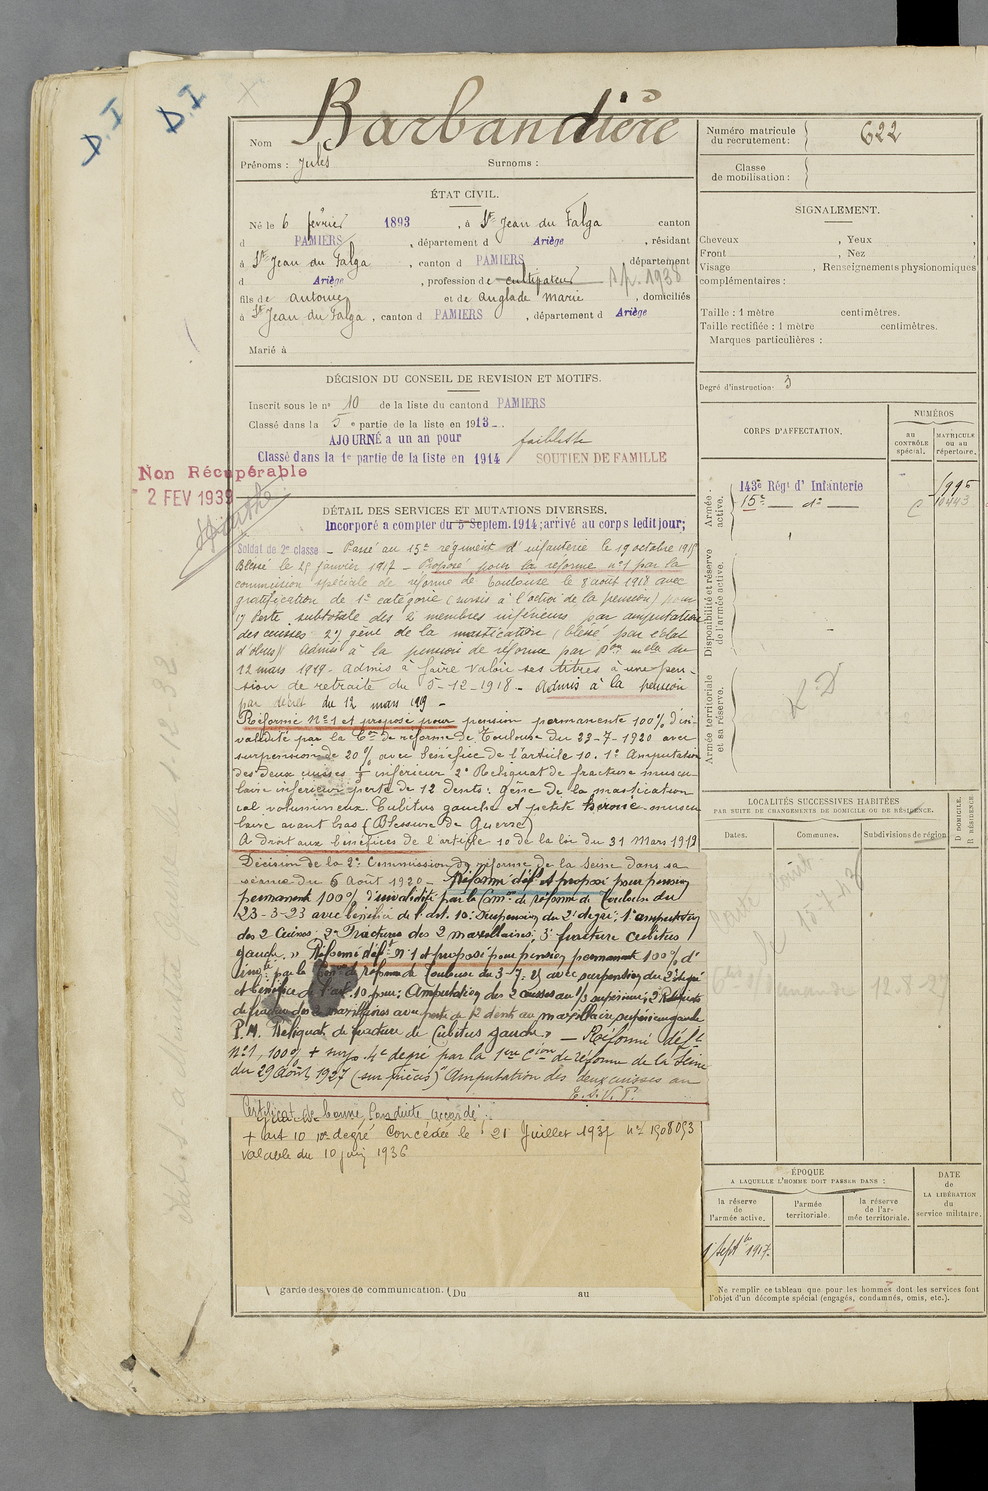 D.I
D.I
Barbandière
Nom
Prénoms : Jules Surnoms :
Numéro matricule du recrutement : 622
Classe de mobilisation :
ÉTAT CIVIL.
Né le 6 février 1893, à St Jean du Falga canton
d PAMIERS, département d Ariège, résidant
à St Jean du Falga, canton d PAMIERS département
d Ariège, profession de cultivateur Ap. 1938
fils de Antoine et de Anglade Marie, domiciliés
à St Jean du Falga, canton d PAMIERS, département d Ariège
Marié à
SIGNALEMENT.
Cheveux , Yeux ,
Front , Nez ,
Visage , Renseignements physionomiques
complémentaires :
Taille : 1 mètre centimètres.
Taille rectifiée : 1 mètre centimètres.
Marques particulières :
Degré d'instruction. 3
DÉCISION DU CONSEIL DE REVISION ET MOTIFS.
Inscrit sous le n° 10 de la liste du canton d PAMIERS
Classé dans la 5e partie de la liste en 1913.
AJOURNÉ a un an pour faiblesse
Classé dans la 1e partie de la liste en 1914 SOUTIEN DE FAMILLE
Non Récupérable
2 FEV 1939
DÉTAIL DES SERVICES ET MUTATIONS DIVERSES.
Incorporé a compter du 5 Septem. 1914; arrivé au corps ledit jour;
Soldat de 2e classe - Passé au 15e régiment d'infanterie le 19 octobre 1915
Blessé le 25 janvier 1917 - Proposé pour la réforme n°1 par la
commission spéciale de réforme de Toulouse le 8 août 1918 avec
gratification de 1e catégorie (sursis à l'octroi de la pension) pour
1) Perte subtotale des 2 membres inférieurs par amputation
des cuisses 2) gêne de la mastication (blessé par éclat
d'obus) Admis à la pension de réforme par Don mlle du
12 mars 1919 - Admis à faire valoir ses titres à une pen-
sion de retraite du 5-12-1918 - Admis à la pension
par décret du 12 mars 1919 -
Réformé N°1 et proposé pour pension permanente 100% d'in-
validité par la Con de réforme de Toulouse du 23-7-1920 avec
surpension de 20% avec bénéfice de l'article 10. 1° Amputation
des deux cuisses inférieur 2° Reliquat de fracture muscu
laire inférieur perte de 12 dents : gêne de la mastication
cal volumineux Cubitus gauche et petite hernie muscu
laire avant bras (Blessure de Guerre)
A droit aux bénéfices de l'article 10 de la loi du 31 Mars 1919
Décision de la 2e Commission de réforme de la Seine dans sa
séance du 6 Août 1920 - Réformé déft et proposé pour pension
permanente 100% d'invalidité par la Comon de réforme de Toulouse du
23-3-23 avec bénéfice de l'art. 10: Surpension du 2e degré; 1° amputation
des 2 Cuisses; 2° Fractures des 2 maxillaires; 3° fracture Cubitus
gauche. » Réformé déft N°1 et proposé pour pension permanente 100% d'
par la Comon de réforme de Toulouse du 3-7-25 avec surpension du 2e degré
et bénéfice de l'art. 10 pour; Amputation des 2 cuisses au 1/3 supérieur; 2° Reliquats
de fracture des 2 maxillaires avec perte de 12 dents au maxillaire supérieur gauche
P.M. Reliquat de fracture de Cubitus gauche » - Réformé déft
N°1, 100% + surp. 4e degré par la 1ere Cion de réforme de la Seine
du 29 Août 1927 (sur pièces) "Amputation des deux cuisses au
T.S.V.P.
Certificat de bonne conduite accordé.
+ art 10 1er degré Concédée le 21 Juillet 1937 n° 1308053
valable du 10 juin 1936
garde des voies de communication. (Du au
CORPS D'AFFECTATION.
NUMÉROS
au CONTRÔLE spécial.
MATRICULE ou au répertoire.
Armée active.
143e Régt d'Infanterie 1995
15e — do — C 10443
Disponibilité et réserve de l'armée active.
Armée territoriale et sa réserve.
LOCALITÉS SUCCESSIVES HABITÉES
PAR SUITE DE CHANGEMENTS DE DOMICILE OU DE RÉSIDENCE.
Dates. Communes. Subdivisions de région.
D DOMICILE.
R RÉSIDENCE
12-8-27
ÉPOQUE
A LAQUELLE L'HOMME DOIT PASSER DANS :
la réserve de l'armée active.
l'armée territoriale.
la réserve de l'armée territoriale.
DATE de LA LIBÉRATION du service militaire.
1 Septbre 1917.
Ne remplir ce tableau que pour les hommes dont les services font
l'objet d'un décompte spécial (engagés, condamnés, omis, etc.).